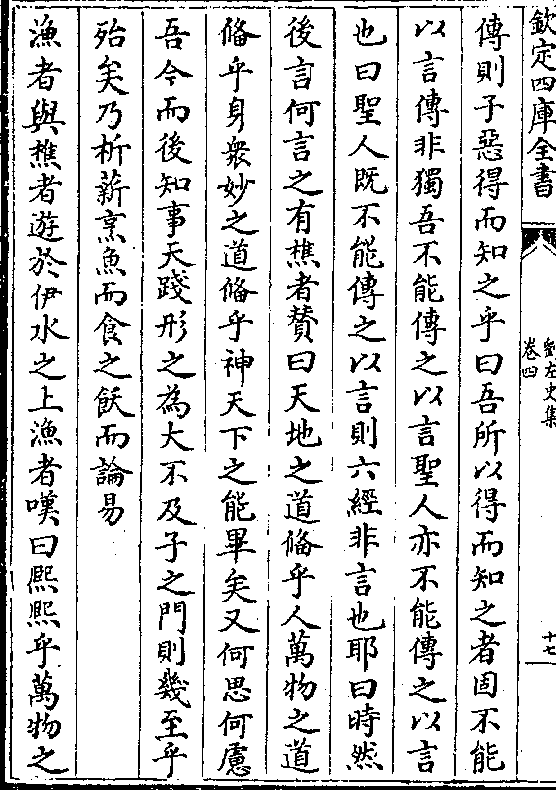 欽定四庫全書
劉左史集
卷四
十七
傳則子惡得而知之乎曰吾所以得而知之者固不能
以言傳非獨吾不能傳之以言聖人亦不能傳之以言
也曰聖人既不能傳之以言則六經非言也耶曰時然
後言何言之有樵者賛曰天地之道備乎人萬物之道
備乎身衆妙之道備乎神天下之能畢矣又何思何慮
吾今而後知事天踐形之為大不及子之門則幾至乎
殆矣乃析薪烹魚而食之飫而論易
漁者與樵者遊於伊水之上漁者嘆曰熙熙乎萬物之